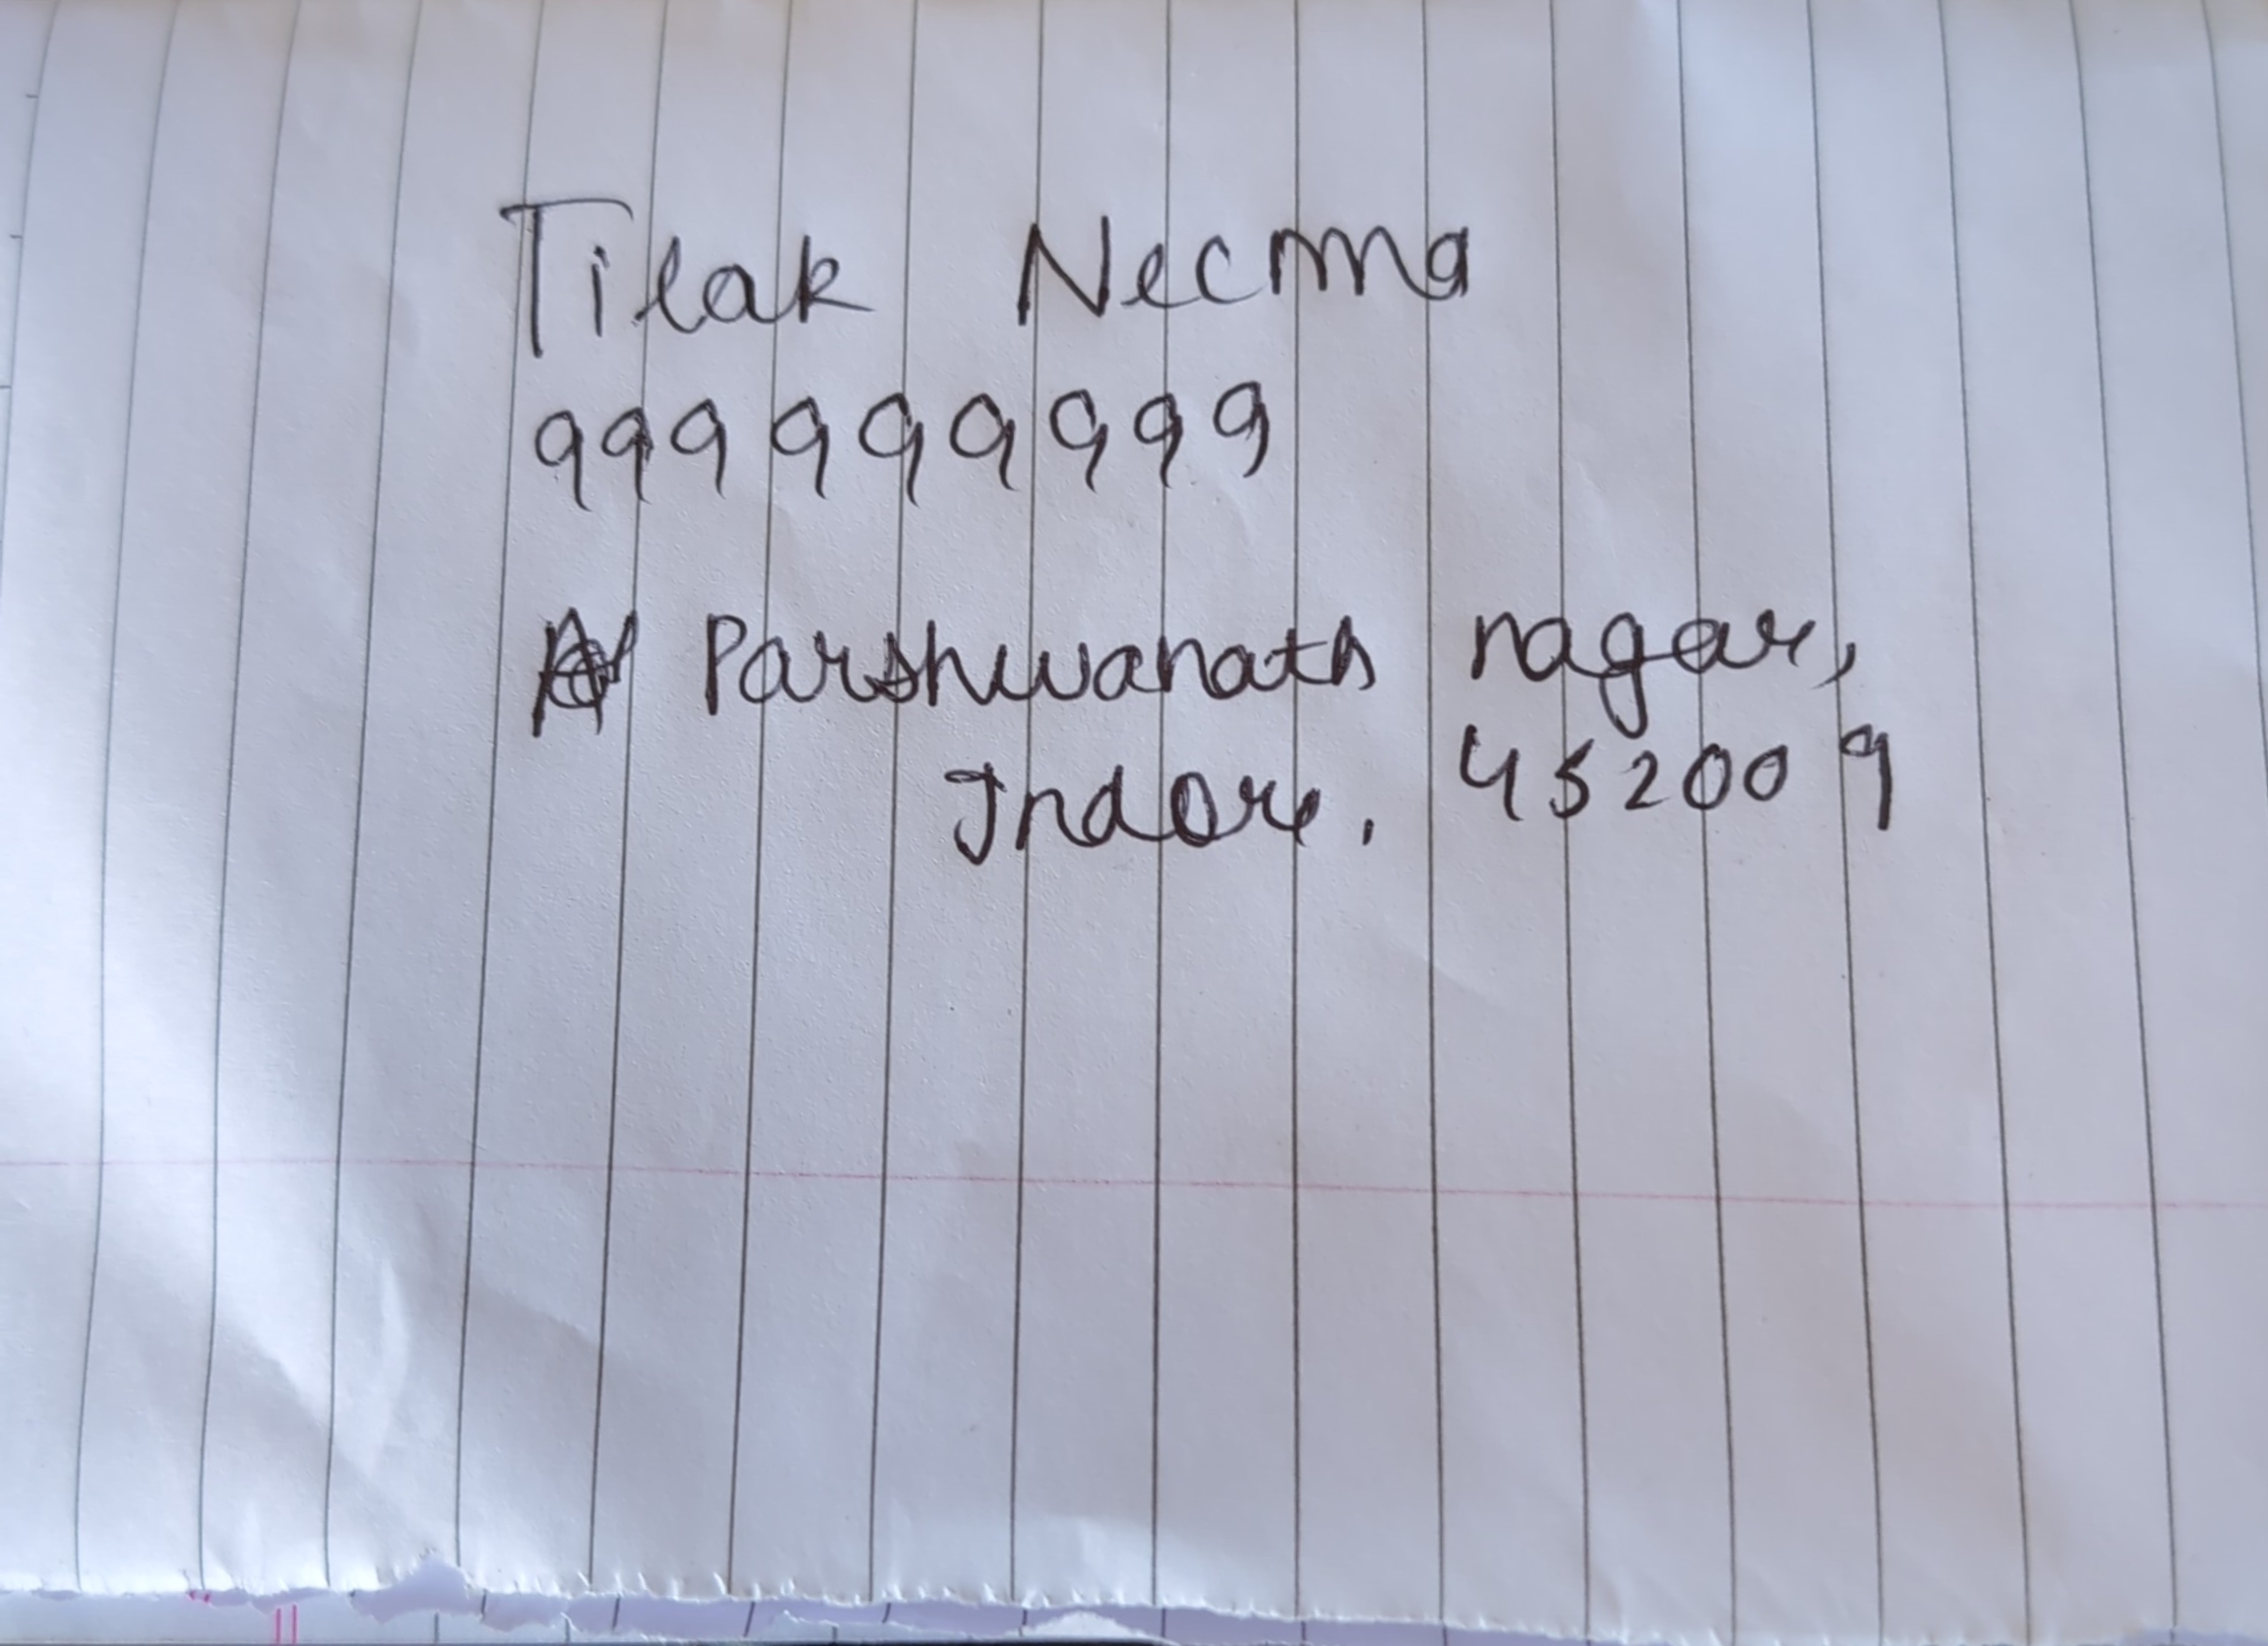 Tilak Necma
999999999
Parshwanath nagar,
Indore. 452009